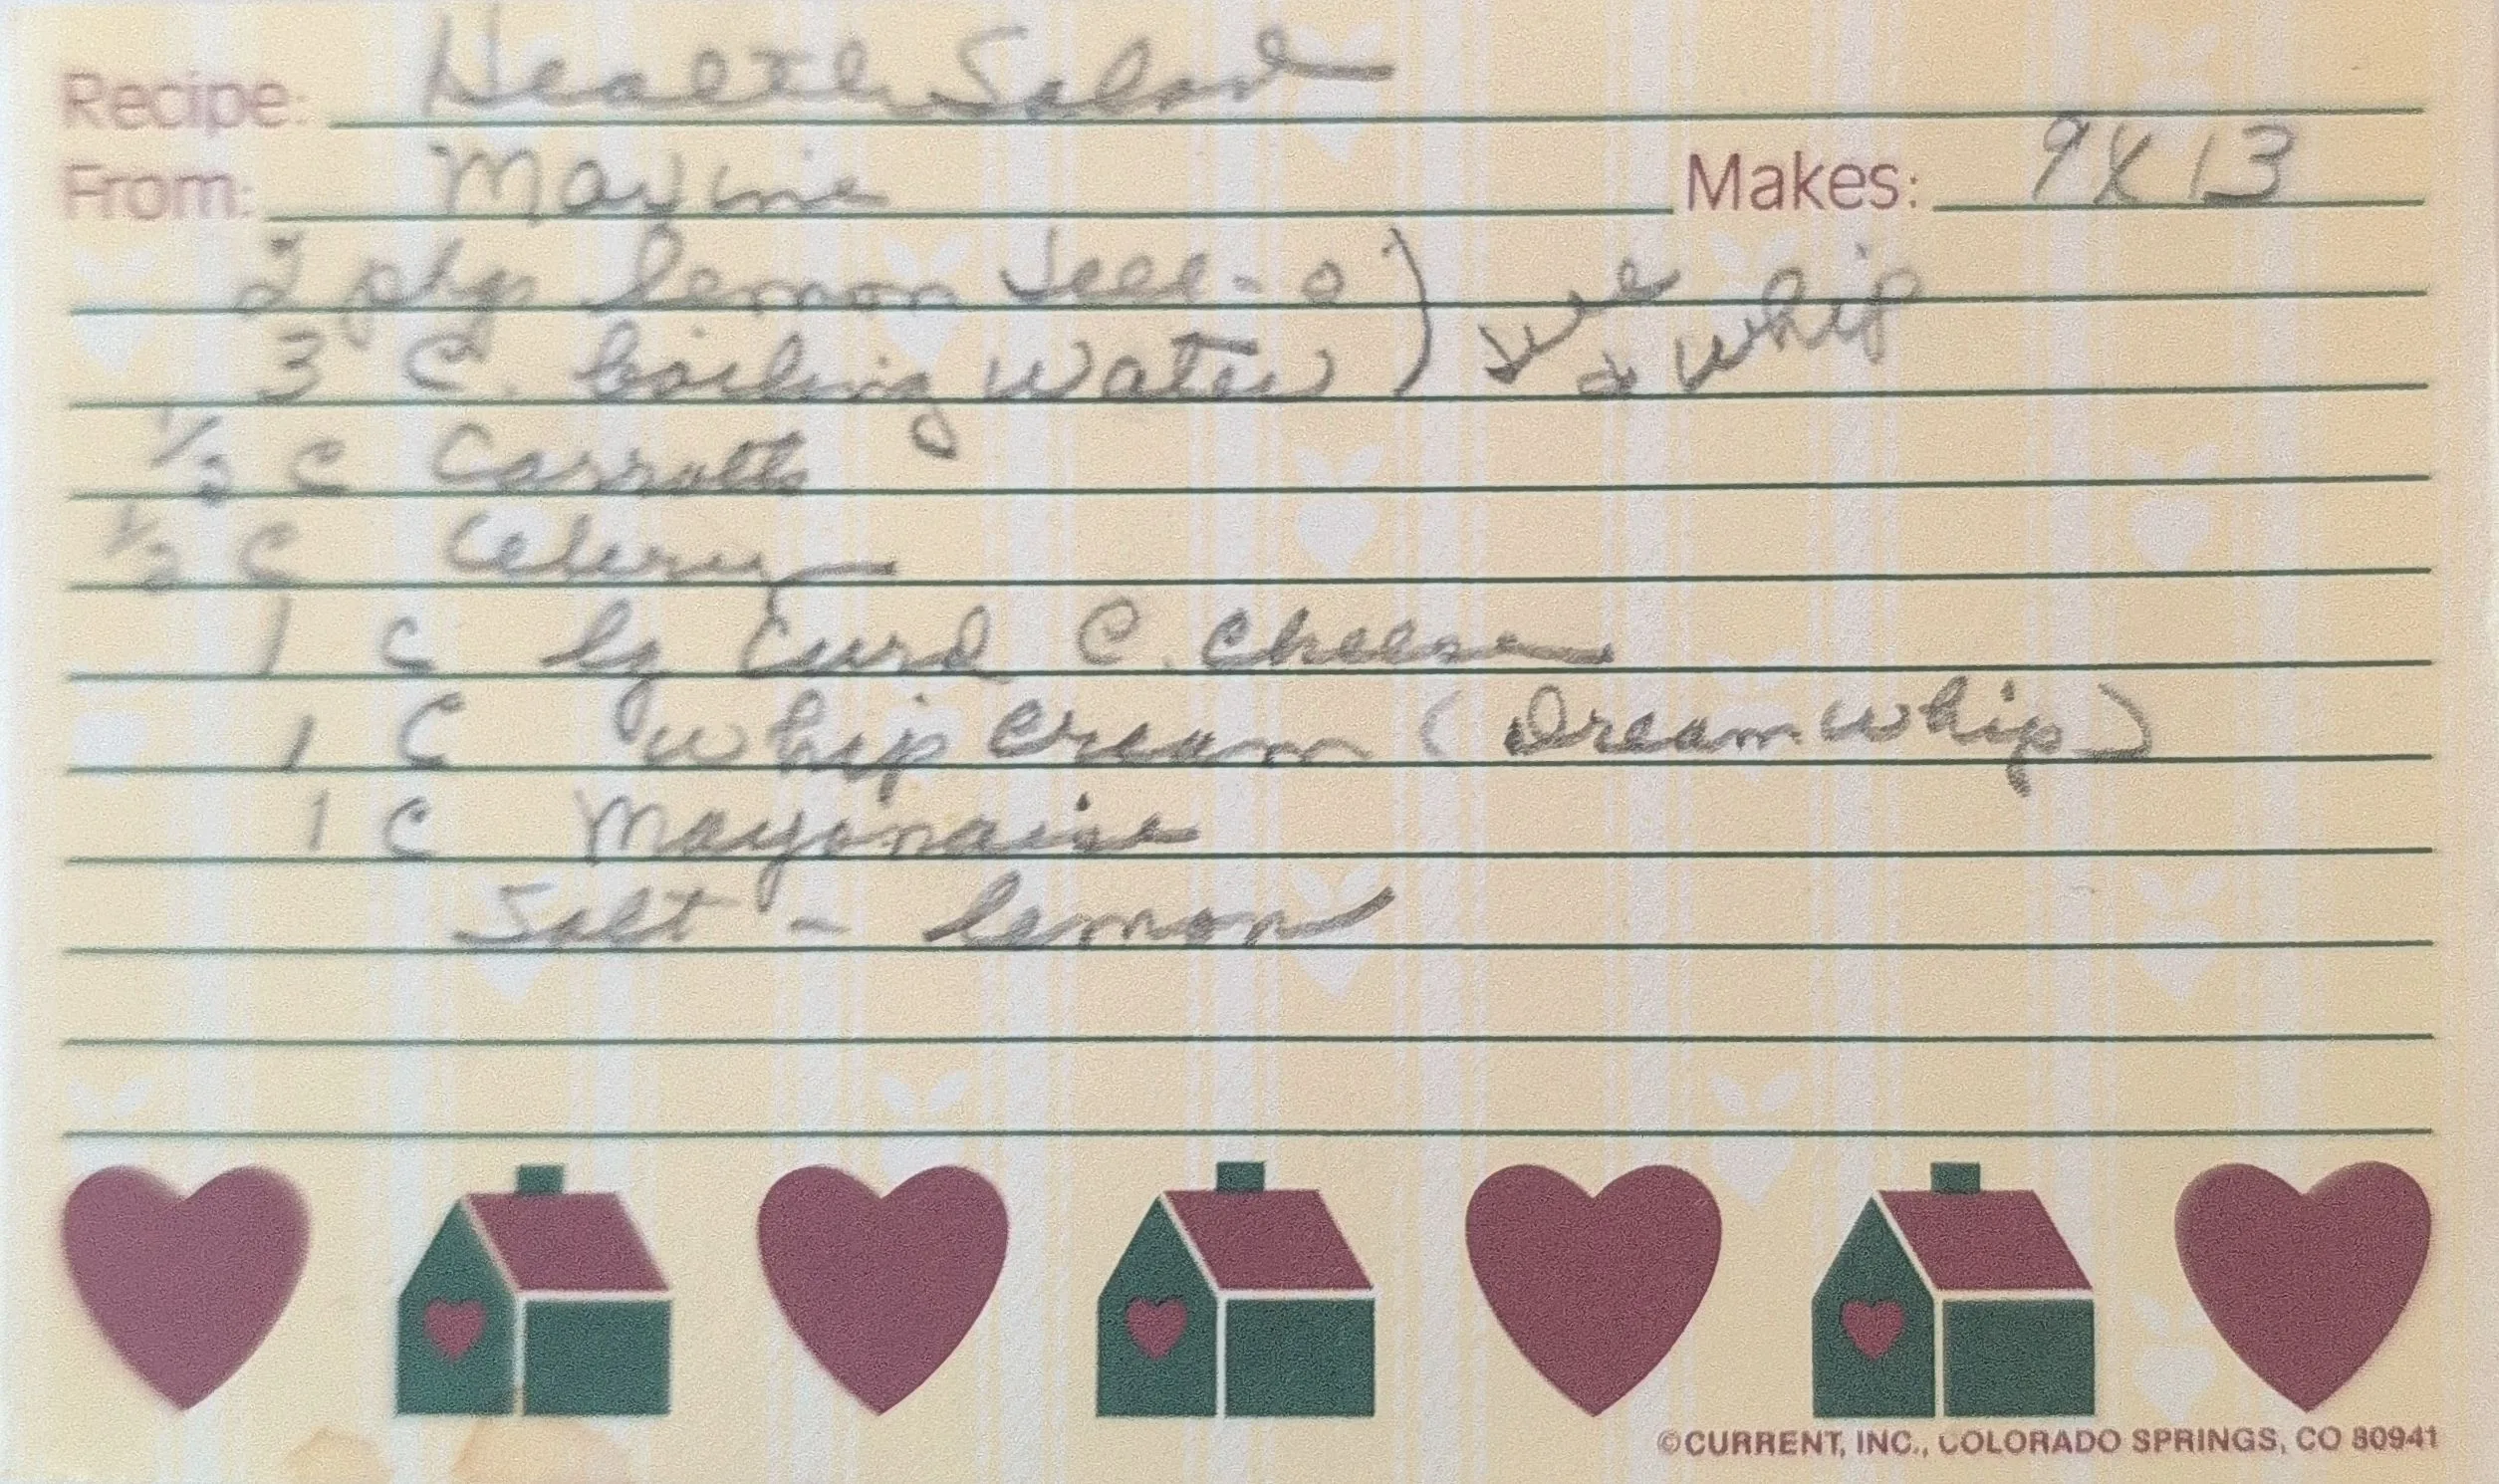 Recipe: Health Salad
From: Maxine Makes: 9X13
2 pkgs lemon Jell-o
3 C. boiling water ) Gel & whip
1/2 C Carrotts
1/2 C Celery
1 C lg Curd C. Cheese
1 C whip cream (Dream whip)
1 C Mayonaise
Salt - lemon
©CURRENT, INC., COLORADO SPRINGS, CO 80941